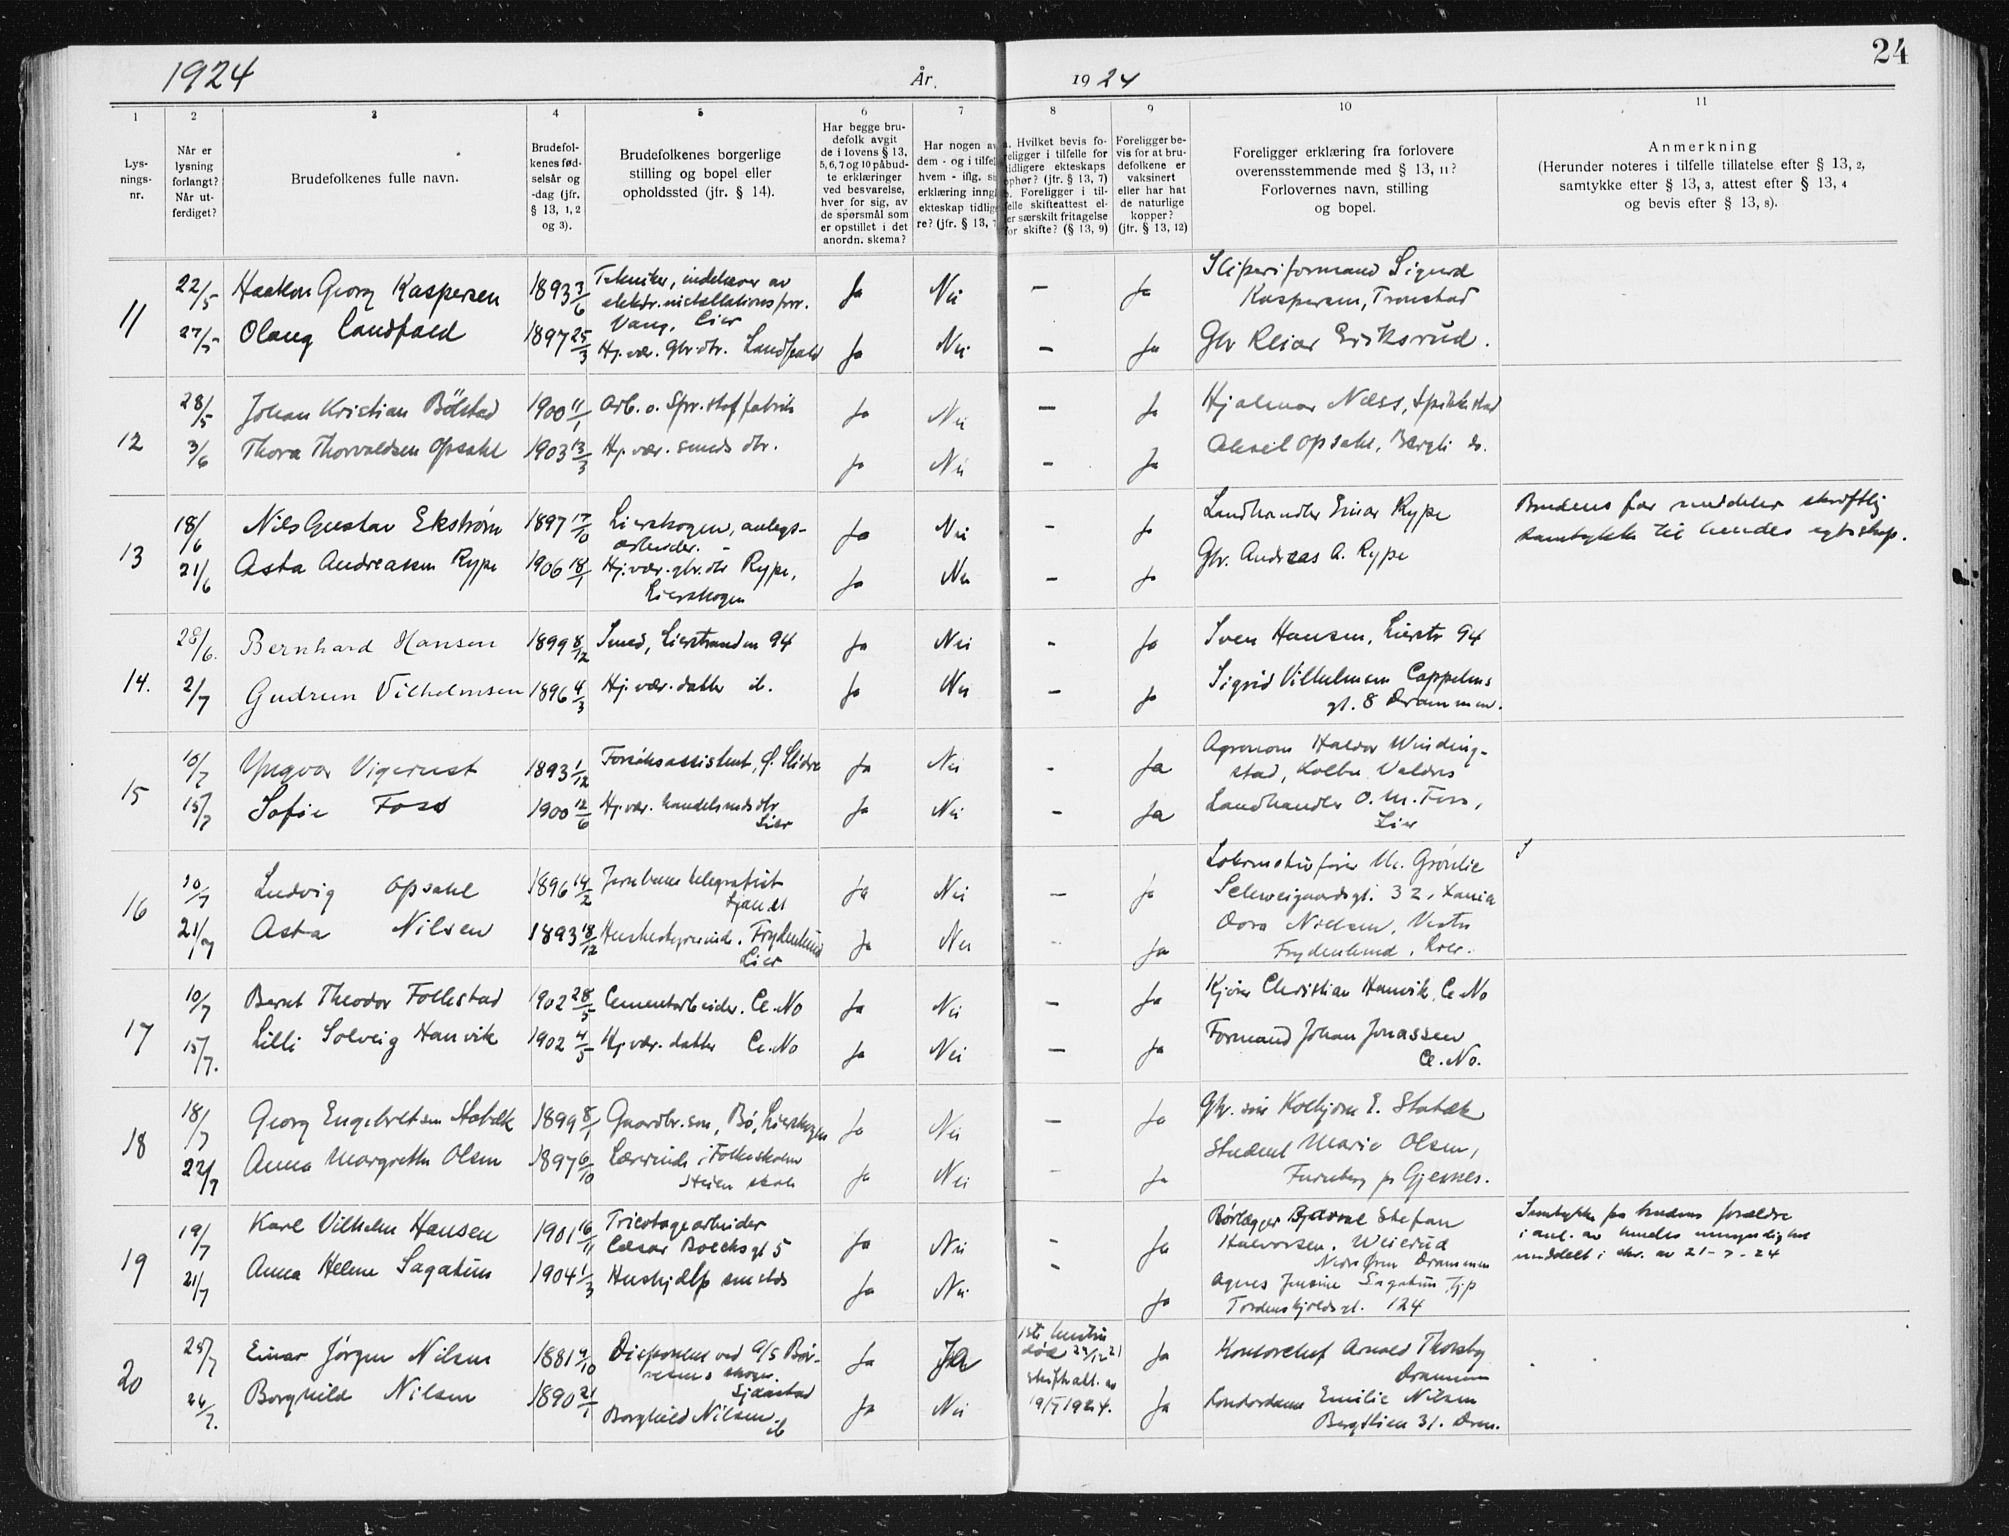 1924 År. 1924 24
1 2 3 4 5 6 7 8 9 10 11
Lysnings-nr.
Når er lysning forlangt? Når utferdiget?
Brudefolkenes fulle navn.
Brudefolkenes fødselsår og -dag (jfr. § 13, 1, 2 og 3).
Brudefolkenes borgerlige stilling og bopel eller opholdssted (jfr. § 14).
Har begge brudefolk avgit de i lovens § 13, 5, 6, 7 og 10 påbudte erklæringer ved besvarelse, hver for sig, av de spørsmål som er opstillet i det anordn. skema?
Har nogen a dem - og i tilfel hvem - iflg. s erklæring inng ekteskap tidlig re? (jfr. § 13, 7
Hvilket bevis fo- religger i tilfelle for tidligere ekteskaps ophør? (jfr. § 13, 7) Foreligger i til- felle skifteattest el- er særskilt fritagelse for skifte? (§ 13, 9)
Foreligger bevis for at brudefolkene er vaksinert eller har hat de naturlige kopper? (jfr. § 13, 12)
Foreligger erklæring fra forlovere overensstemmende med § 13, 11? Forlovernes navn, stilling og bopel.
Anmerkning (Herunder noteres i tilfelle tillatelse efter § 13, 2, samtykke efter § 13, 3, attest efter § 13, 4 og bevis efter § 13, 8).
11 22/5 Haakon Georg Kaspersen 1893 3/6 Tekniker, indehaver av elektr. installationsforr. Vang, Lier Ja Nei — Ja Sliperiformand Sigurd Kaspersen, Tronstad
27/5 Olaug Landfald 1897 25/3 Hj. vær. Gbr. dtr. Landfald Ja Nei — Ja Gbr Reiar Eriksrud.
12 28/5 Johan Kristian Bølstad 1900 11/1 Arb. v. Spr. stoffabrik Ja Nei — Ja Hjalmar Næss, Spikkestad
3/6 Thora Thorvaldsen Opsahl 1903 13/3 Hj. vær. smeds dtr. Ja Nei — Ja Aksel Opsahl, Bergli
13 18/6 Nils Gustav Ekstrøm 1897 17/10 Lierskogen, anlegs-arbeider. Ja Nei - Ja Landhandler Einar Rype Brudens far meddeler skriftlig samtykke til hendes egteskap.
21/6 Asta Andreassen Rype 1906 18/1 Hj. vær. gbr. dtr Rype, Lierskogen Ja Nei — Ja Gbr. Andreas A. Rype
14. 28/6. Bernhard Hansen 1899 8/12 Smed, Lierstranden 94 Ja Nei - Ja Sven Hansen, Lierstr 94
2/7 Gudrun Vilhelmsen 1896 4/3 Hj. vær. datter ib. Ja Nei — Ja Sigrid Vilhelmsen Cappelens gt. 8 Drammen.
15 10/7 Yngvar Vigerust 1893 1/12 Forsøksassistent, Ø. Slidre Ja Nei - Ja Agronom Haldor Windingstad, Kolbu Valdres
15/7 Sofie Foss 1900 12/6 Hj. vær. handelsmds dtr Lier Ja Nei — Ja Landhandler O. M. Foss, Lier
16 10/7 Ludvig Opsahl 1896 14/2 Jernbane telegrafist Ja Nei — Ja Lokomotivfører M. Grønlie Schweigaardsgt. 32, Xania
21/7 Asta Nilsen 1893 18/12 Husbestyrerinde, Frydenlund Lier Ja Nei - Ja Dora Nielsen, Vestre Frydenlund, Lier.
17 10/7 Bernt Theodor Follestad 1902 28/5 Cementarbeider. Ce. No Ja Nei — Ja Kjører Christian Hanvik, Ce. No
15/7. Lilli Solveig Hanvik 1902 4/5 Hj. vær. datter Ce. No Ja Nei — Ja Formand Johan Jonassen Ce. No.
18 18/7 Georg Engebretsen Stabæk 1899 8/1 Gaardbr. søn, Bø, Lierskogen Ja Nei — Ja Gbr. søn Kolbjørn E. Stabæk
22/7 Anna Margrethe Olsen 1897 6/10 Lærerinde i Folkeskolen Heien skole Ja Nei - Ja Student Marie Olsen, Furuberg pr Gjesnes.
19 19/7 Karl Vilhelm Hansen 1901 16/11 Tricotagearbeider Cæsar Boecksgt 5 Ja Nei - Ja Rørlægger Bjarne Stefan Halvorsen, Weierud Nedre Øren Drammen Samtykke fra brudens forældre i anl. av hendes umyndighet meddelt i skr. av 21-7-24
21/7 Anna Helene Sagatun 1904 1/3 Hushjælp smsteds Ja Nei - Ja Agnes Jensine Sagatun, Tordenskjoldsgt. 124
20 25/7 Einar Jørgen Nilsen 1881 4/10 Disponent ved A/S Børresens skog. Gjennestad Ja Ja 1ste hustru død 24/12 21 skifteatt. av 19/5 1924. Ja Kontorchef Arnold Thoresby Drammen
26/7. Borghild Nilsen 1890 21/1 Borghild Nilsen. ib Ja Nei Ja Kontordame Emilie Nilsen Bergstien 31. Dram.